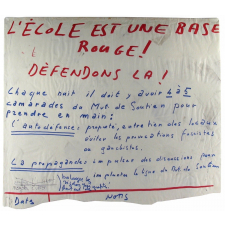 L'ÉCOLE EST UNE BASE
ROUGE!
DÉFENDONS LA!
Chaque nuit il doit y avoir 4 à 5
camarades du Mot de Soutien pour
prendre en main:
L'autodéfense: propreté, entretien des locaux
éviter les provocations fascistes
ou gauchistes.
La propagande: impulser des discussions pour
implanter la ligne du Mot de Soutien
Date NOMS